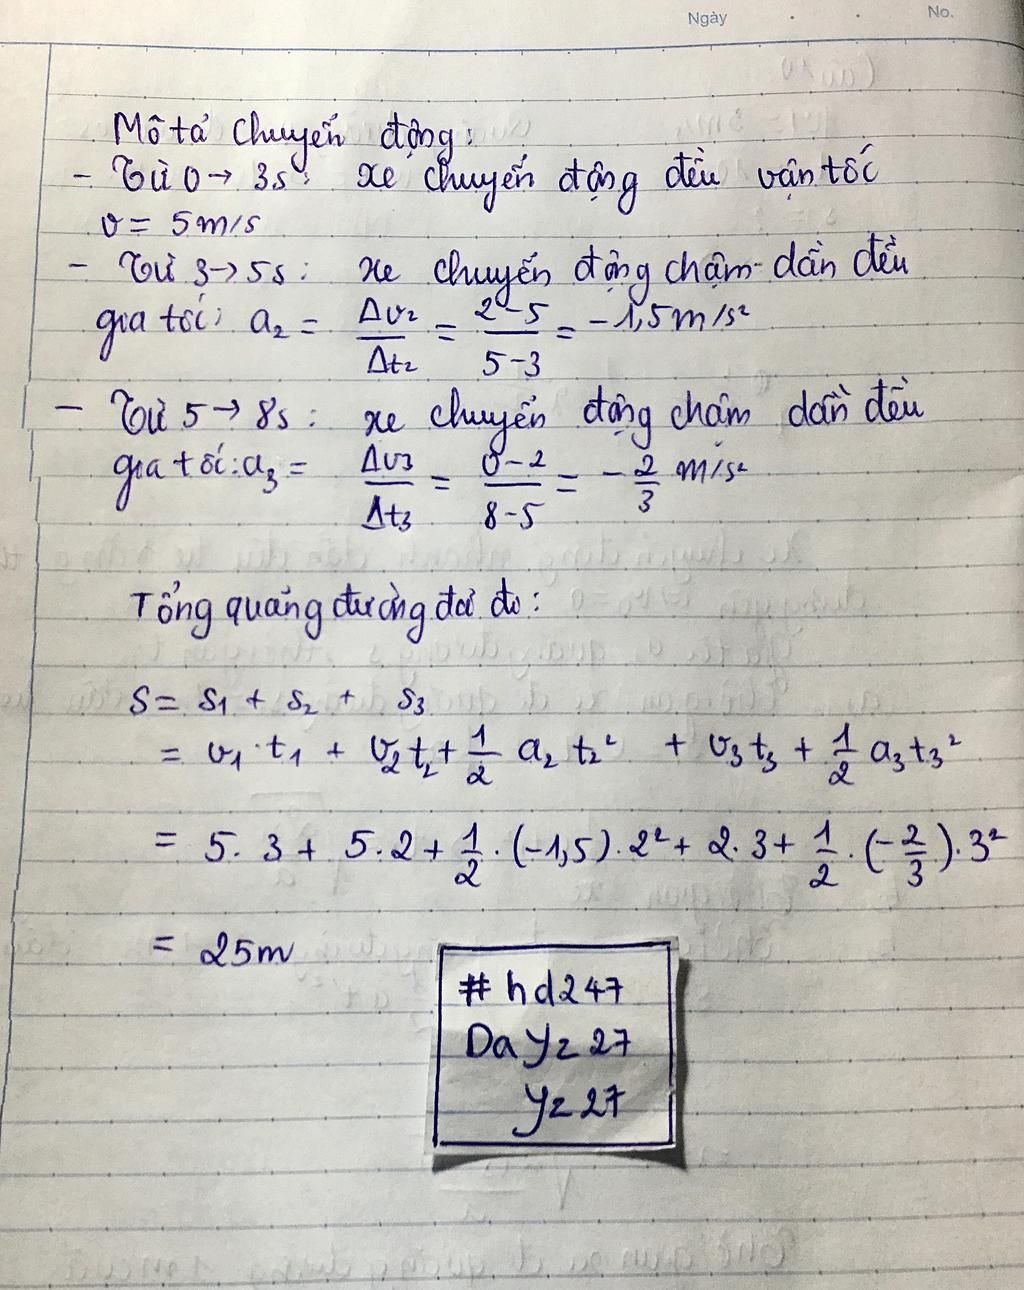 Ngày No.
Mô tả chuyển động:
- Từ 0 → 3s: xe chuyển động đều vận tốc
v = 5m/s
- Từ 3 → 5s: xe chuyển động chậm dần đều
gia tốc: a₂ = Δv₂/Δt₂ = (2-5)/(5-3) = -1,5m/s²
- Từ 5 → 8s: xe chuyển động chậm dần đều
gia tốc: a₃ = Δv₃/Δt₃ = (0-2)/(8-5) = -2/3 m/s²
Tổng quảng đường đã đi:
S = S₁ + S₂ + S₃
= v₁·t₁ + v₂t₂ + 1/2 a₂t₂² + v₃t₃ + 1/2 a₃t₃²
= 5.3 + 5.2 + 1/2.(-1,5).2² + 2.3 + 1/2.(-2/3).3²
= 25m
#hd247
Da Yz 27
Yz 27